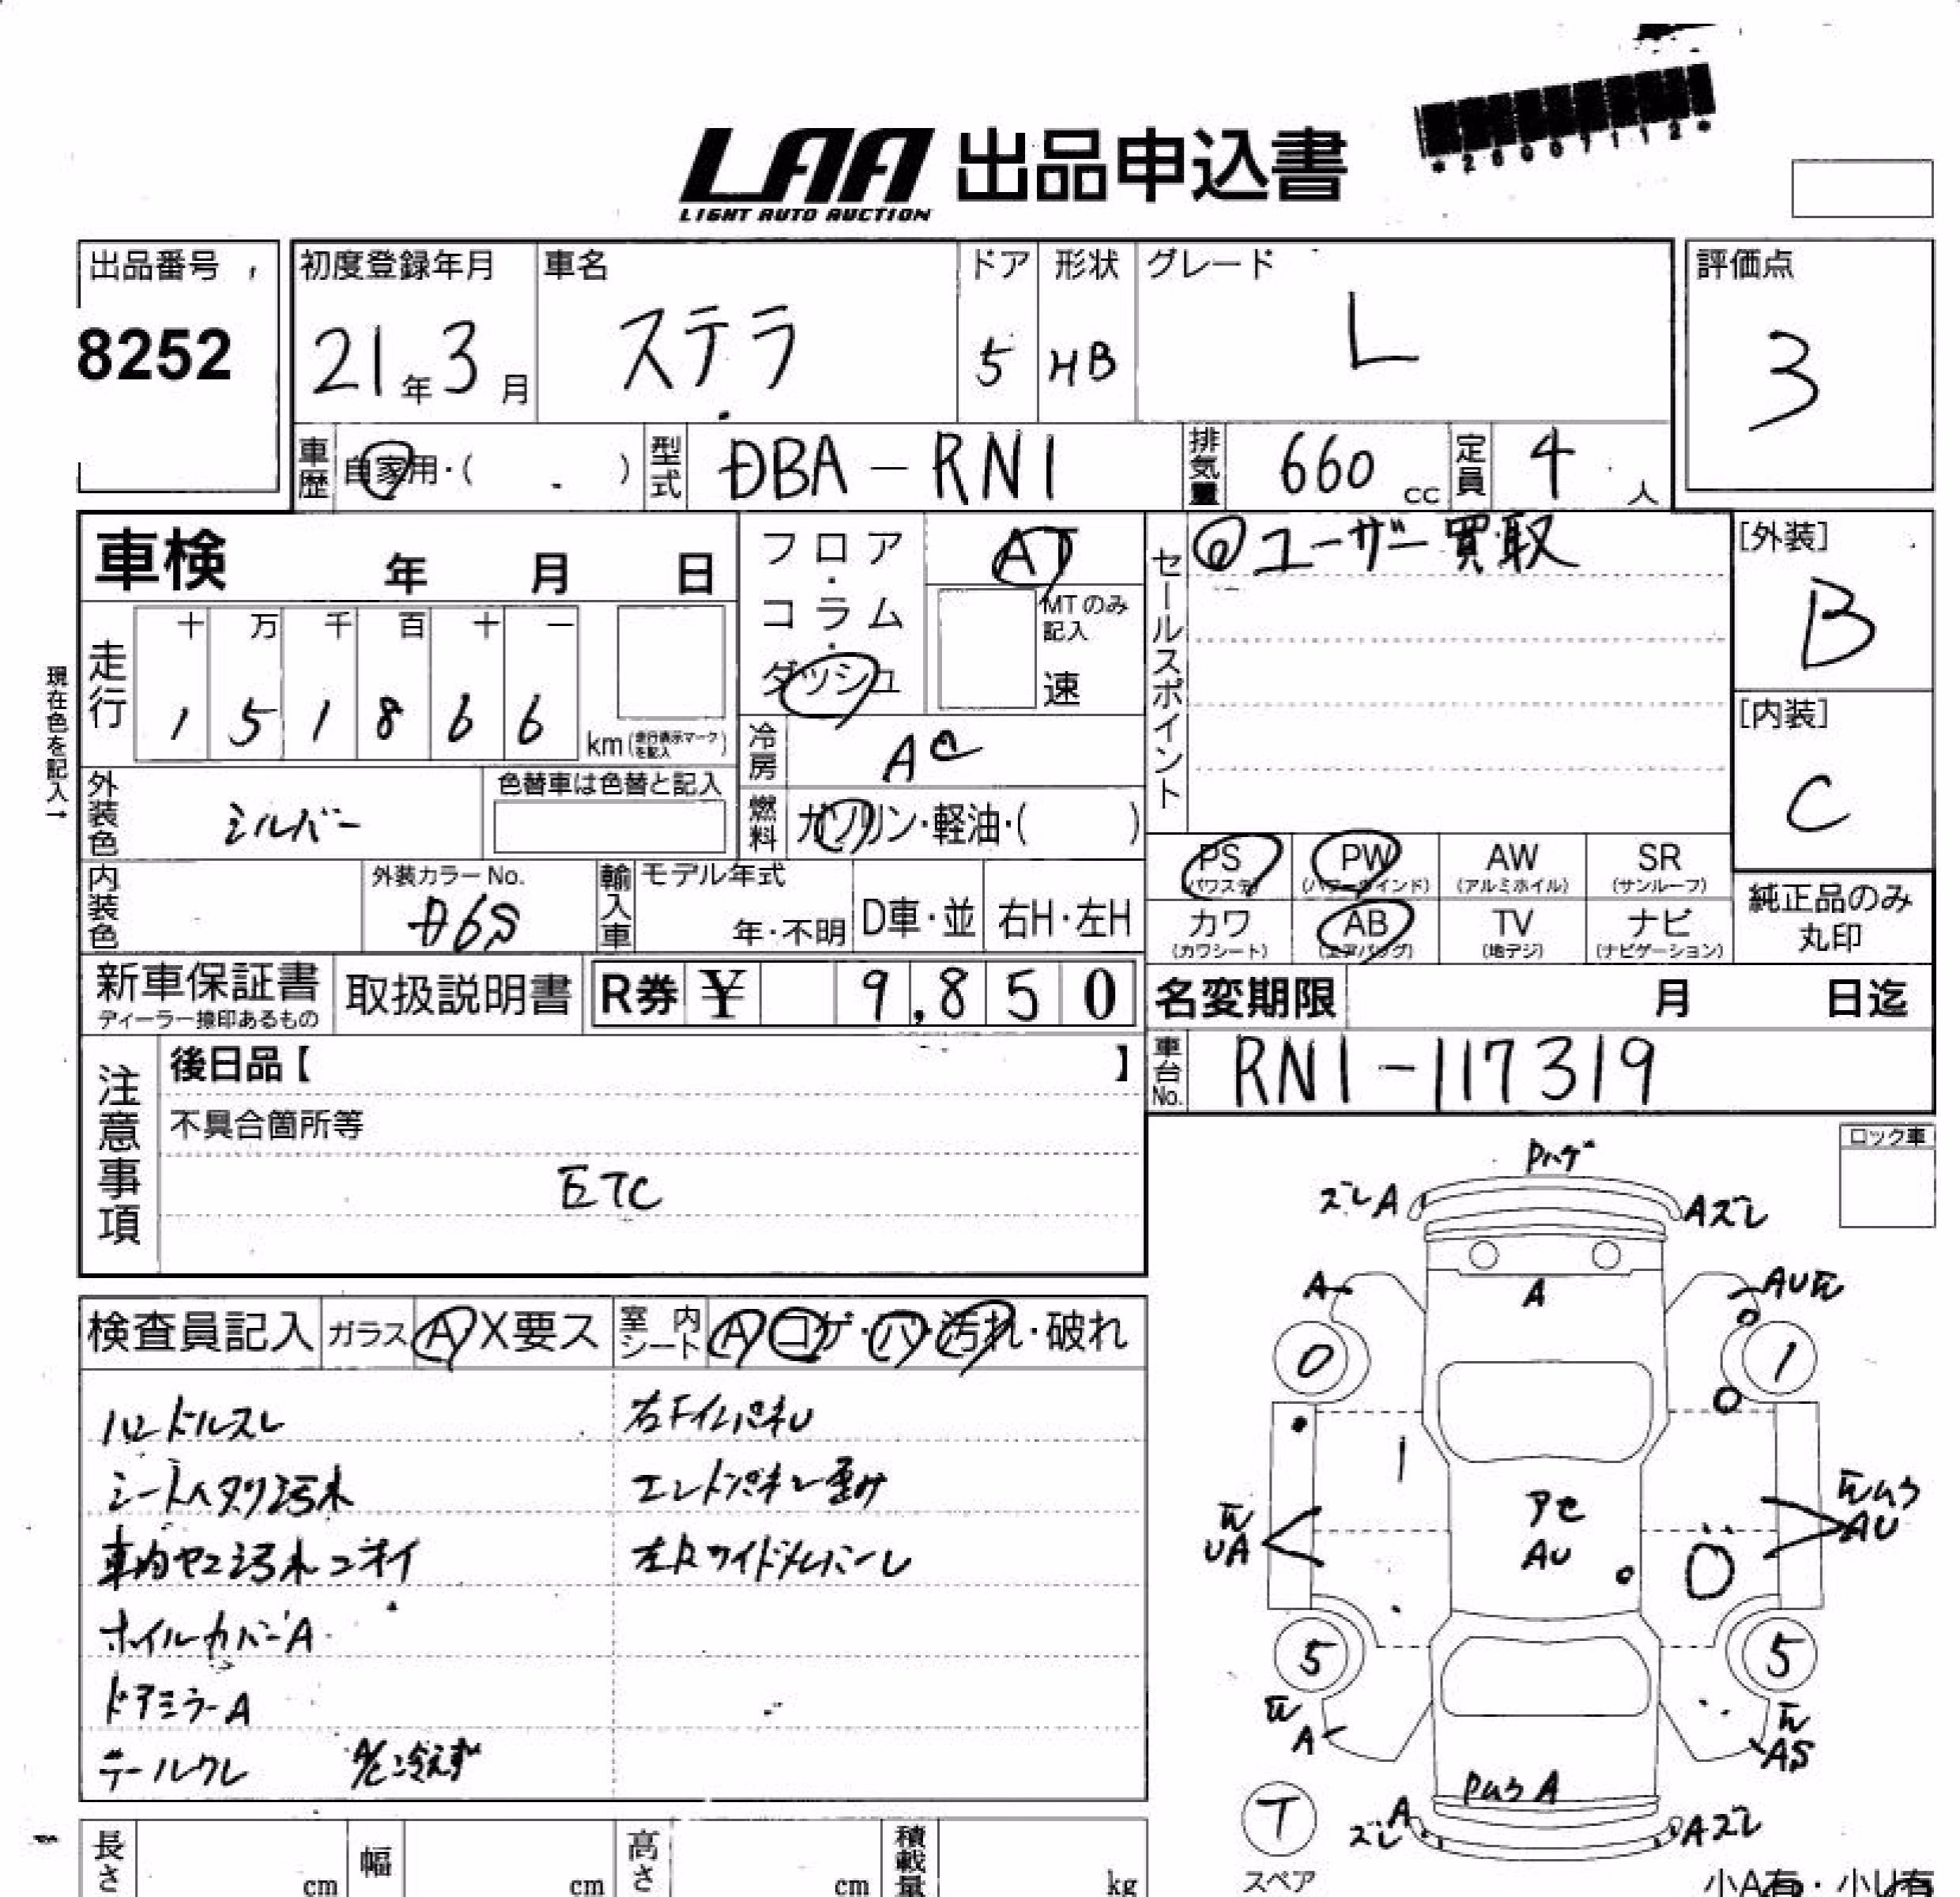 LAA 出品申込書
LIGHT AUTO AUCTION
出品番号
8252
初度登録年月
21年3月
車名
ステラ
ドア
5
形状
HB
グレード
L
評価点
3
車歴
自家用・( )
型式
DBA-RN1
排気量
660 cc
定員
4 人
車検 年 月 日
フロア・コラム・ダッシュ
AT
MTのみ記入
速
セールスポイント
ユーザー買取
[外装]
B
[内装]
C
現在色を記入→
走行
十 万 千 百 十 一
1 5 1 8 6 6
km (走行表示マークを記入)
冷房
AC
燃料
ガソリン・軽油・( )
外装色
シルバー
色替車は色替と記入
内装色
外装カラーNo.
D6S
輸入車
モデル年式
年・不明
D車・並
右H・左H
PS (パワステ)
PW (パワーウインド)
AW (アルミホイル)
SR (サンルーフ)
カワ (カワシート)
AB (エアバッグ)
TV (地デジ)
ナビ (ナビゲーション)
純正品のみ
丸印
新車保証書
ディーラー捺印あるもの
取扱説明書
R券 ¥ 9,850
名変期限 月 日迄
車台No.
RN1-117319
注意事項
後日品【 】
不具合箇所等
ETC
ロック車
検査員記入
ガラス A X要ス
室内シート A コゲ・パ・汚れ・破れ
ハンドルスレ
シートヘタリ汚れ
車内ヤニ汚れニオイ
ホイルカバーA
ドアミラーA
テールワレ
A/C冷えず
右FインパネU
エンドパネル歪み
Pハゲ
ズレA
Aズレ
A
AU
A
0
1
アセ
AU
UA
AU
5
5
A
AS
A
T
スペア
ズレ A
Aズレ
長さ cm
幅 cm
高さ cm
積載量 kg
小A有・小U有